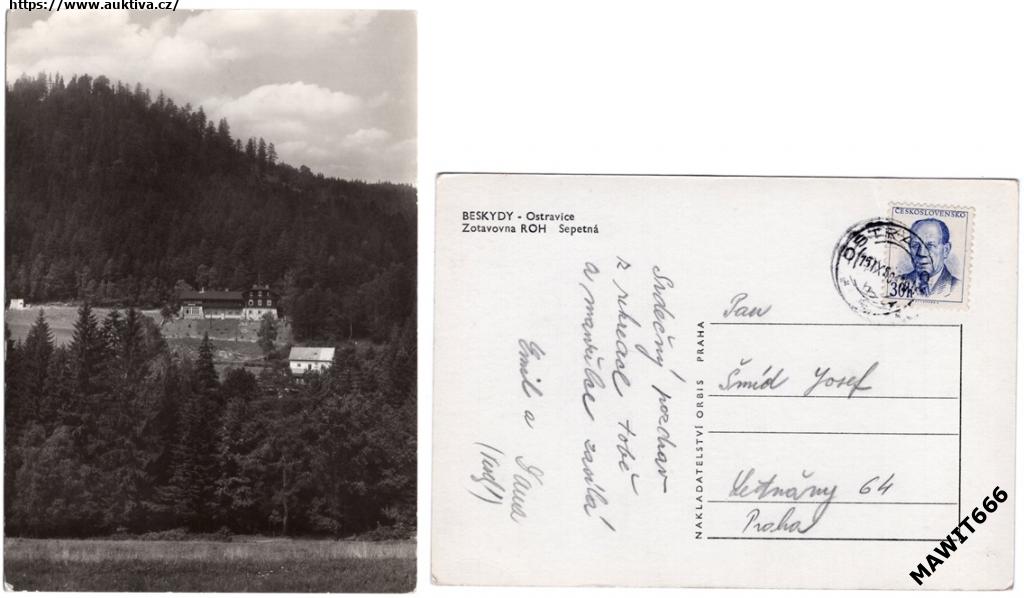 https://www.auktiva.cz/
BESKYDY - Ostravice
Zotavovna ROH Sepetná
Srdečný pozdrav
z rekreace tobě
a manželce zasílá
Emil a
ČESKOSLOVENSKO
30h
NAKLADATELSTVÍ ORBIS PRAHA
Pan
Šmíd Josef
Letnány 64
Praha
MAWIT666